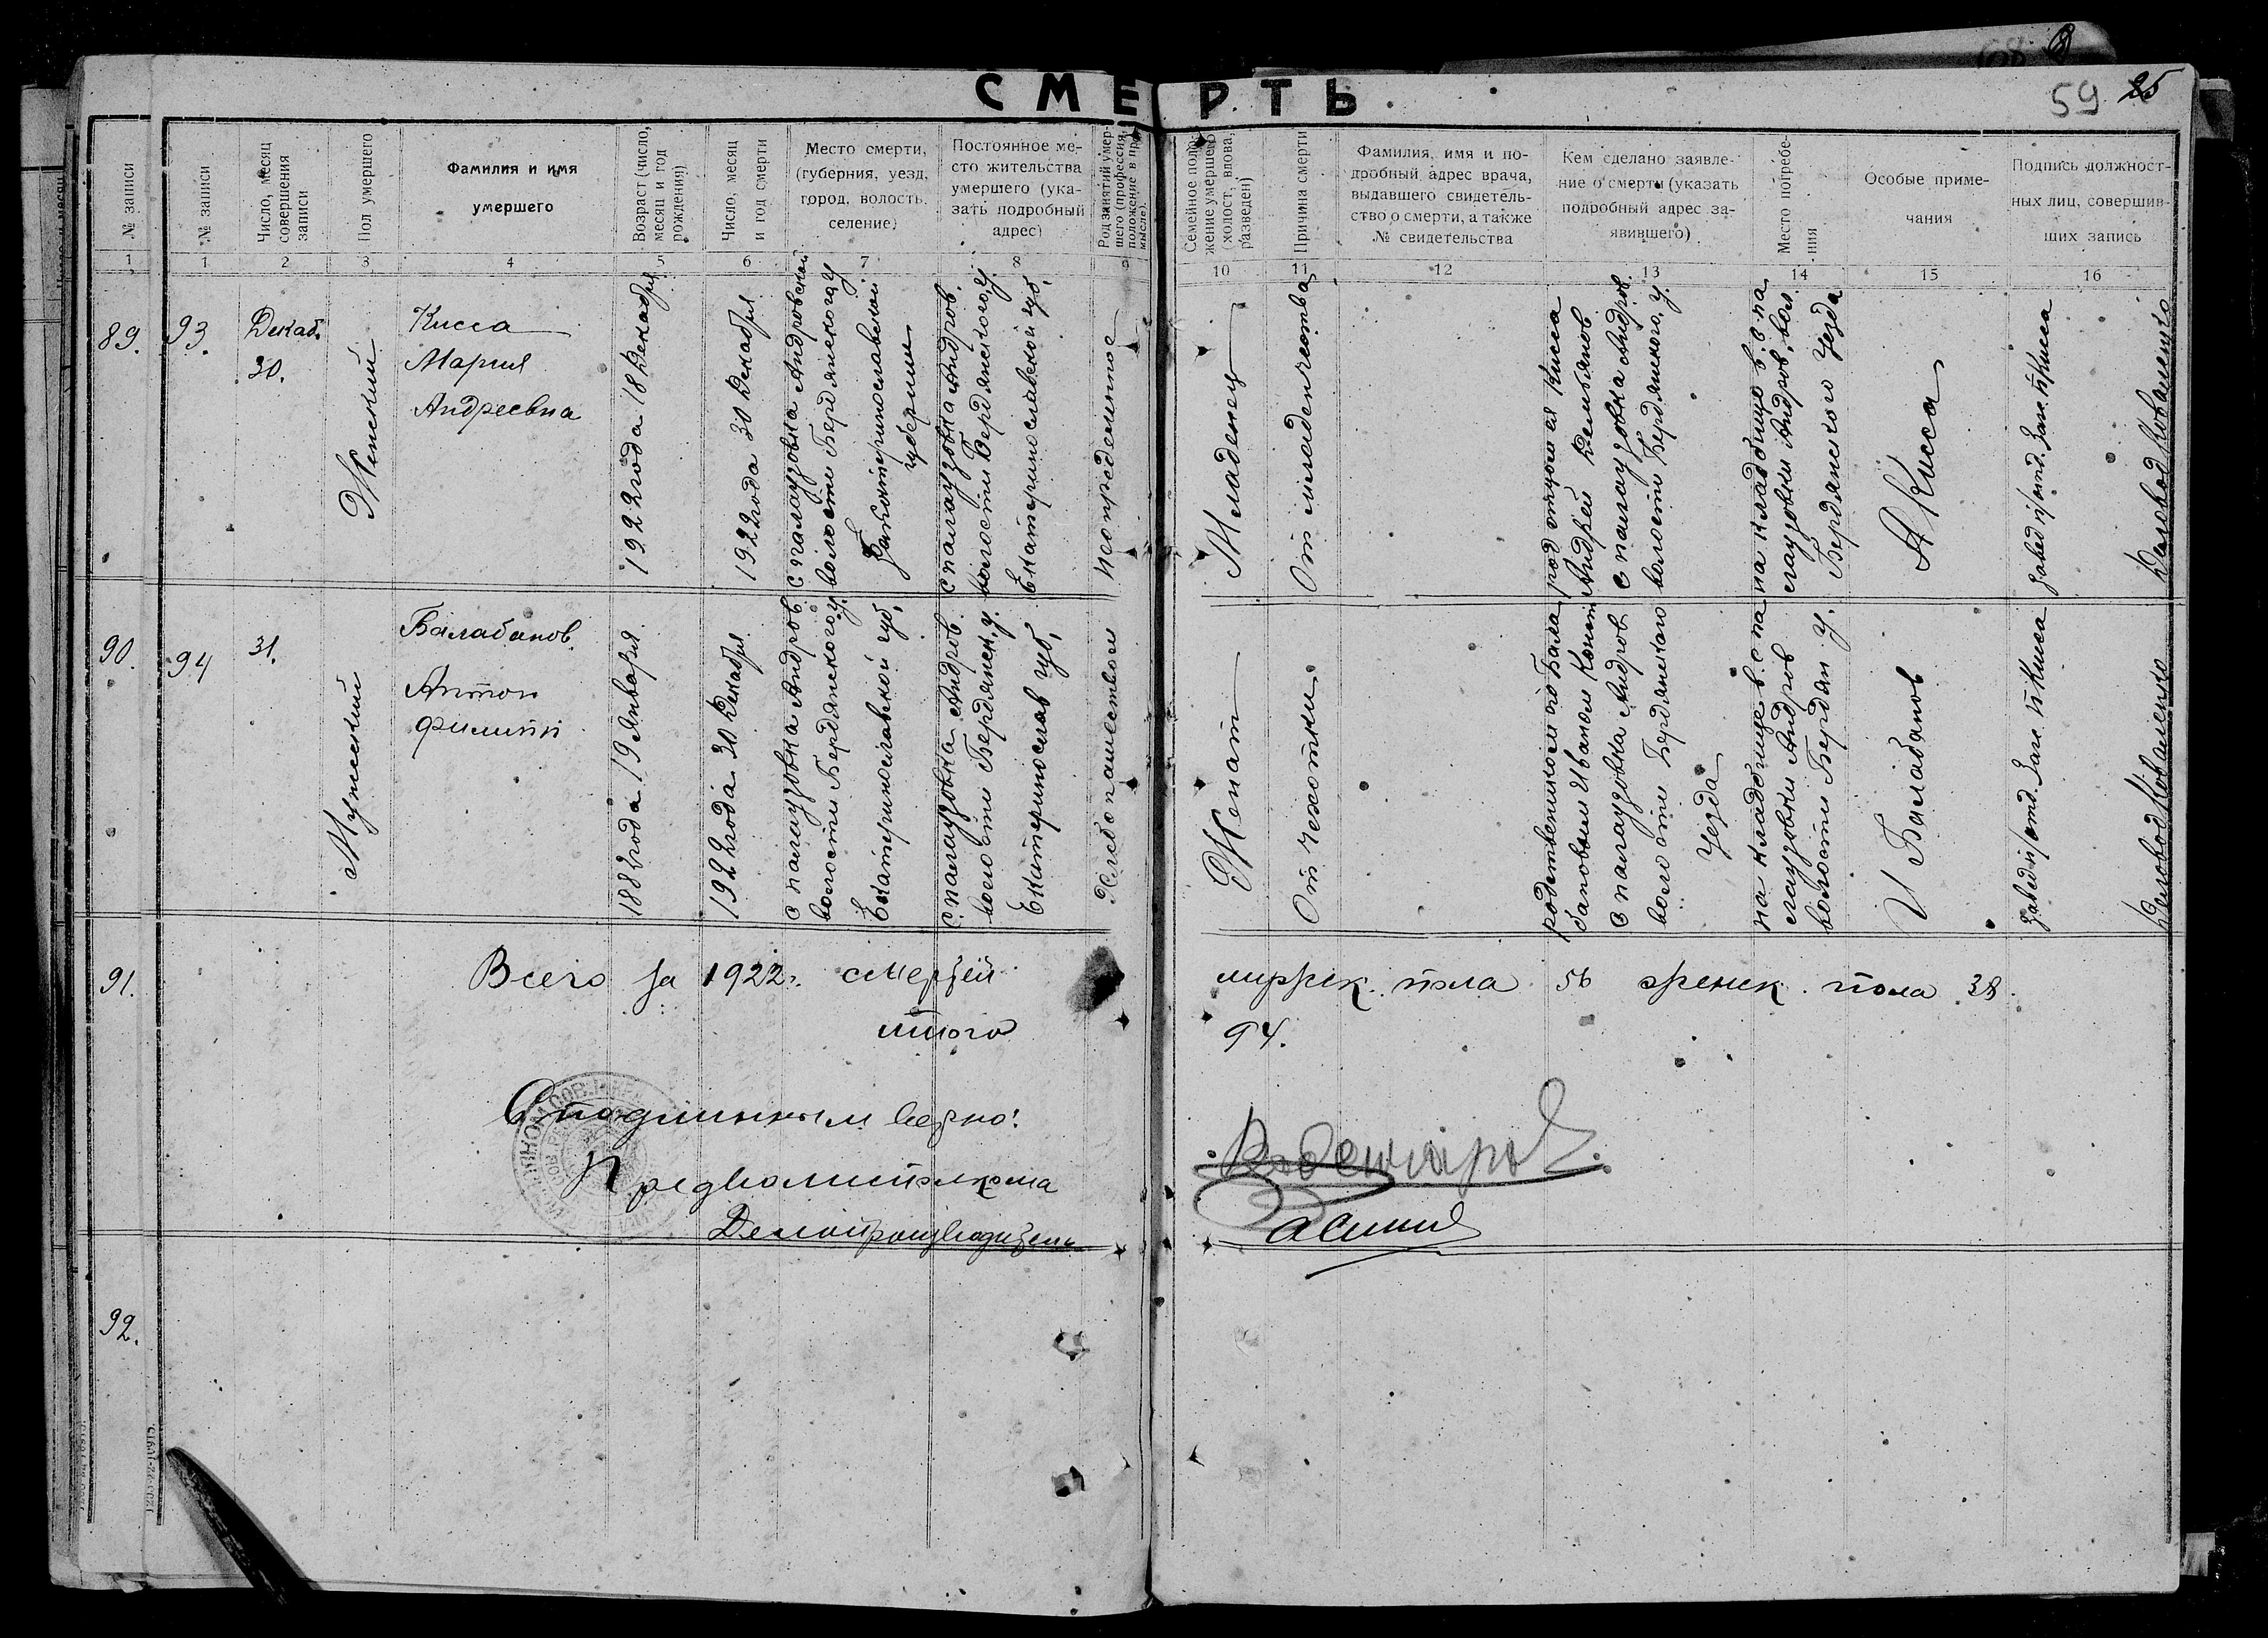 СМЕРТЬ
59 25
№ записи
№ записи
Число, месяц
совершения
записи
Пол умершего
Фамилия и имя
умершего
Возраст (число,
месяц и год
рождения)
Число, месяц
и год смерти
Место смерти,
(губерния, уезд,
город, волость,
селение)
Постоянное ме-
сто жительства
умершего (ука-
зать подробный
адрес)
Род занятий умер-
шего (профессия,
положение в про-
мысле).
Семейное поло-
жение умершего
(холост, вдова,
разведен)
Причина смерти
Фамилия, имя и по-
дробный адрес врача,
выдавшего свидетель-
ство о смерти, а также
№ свидетельства
Кем сделано заявле-
ние о смерти (указать
подробный адрес за-
явившего)
Место погребе-
ния
Особые приме-
чания
Подпись должност-
ных лиц, совершив-
ших запись
1 1 2 3 4 5 6 7 8 9 10 11 12 13 14 15 16
89. 93.
Декаб.
30.
Женский
Кисса
Мария
Андреевна
1922 года 18 Декабря
1922 года 30 Декабря
с Палаузовка Андровской
волости Бердянского у
Екатеринославской
губернии
с Палаузовка Андров.
волости Бердянского у.
Екатеринославской губ,
Неопределенное
Младенец
От младенчества
Андрей Демьянов
с Палаузовка Андров.
волости Бердянского, у.
на кладбище в. с па
лаузовки Андров. вол.
Бердянского Уезда
А Кисса
Завед п/отд. Заг. Кисса
Деловод Коваленко
90. 94
31.
Мужеский
Балабанов.
Антон
Филипп
1882 года 19 Января
1922 года 30 Декабря
с Палаузовка Андров.
волости Бердянского у
Екатеринославской губ,
с. Палаузовка Андров.
волости Бердянск. у.
Екатеринослав губ,
Хлебопашеством
Женат
От чехотки
родственником его Бала
бановым Иваном Конст
с Палаузовка Андров
волости Бердянского
Уезда
на кладбище в. с па
лаузовки Андров
волости Бердян у.
И Балабанов
Завед п/отд. Заг. Кисса
Деловод Коваленко
91.
Всего за 1922 г. смертей мужск. пола 56 женск. пола 38.
итого 94.
С подлинным верно:
Предволисполкома
Делопроизводитель
92.